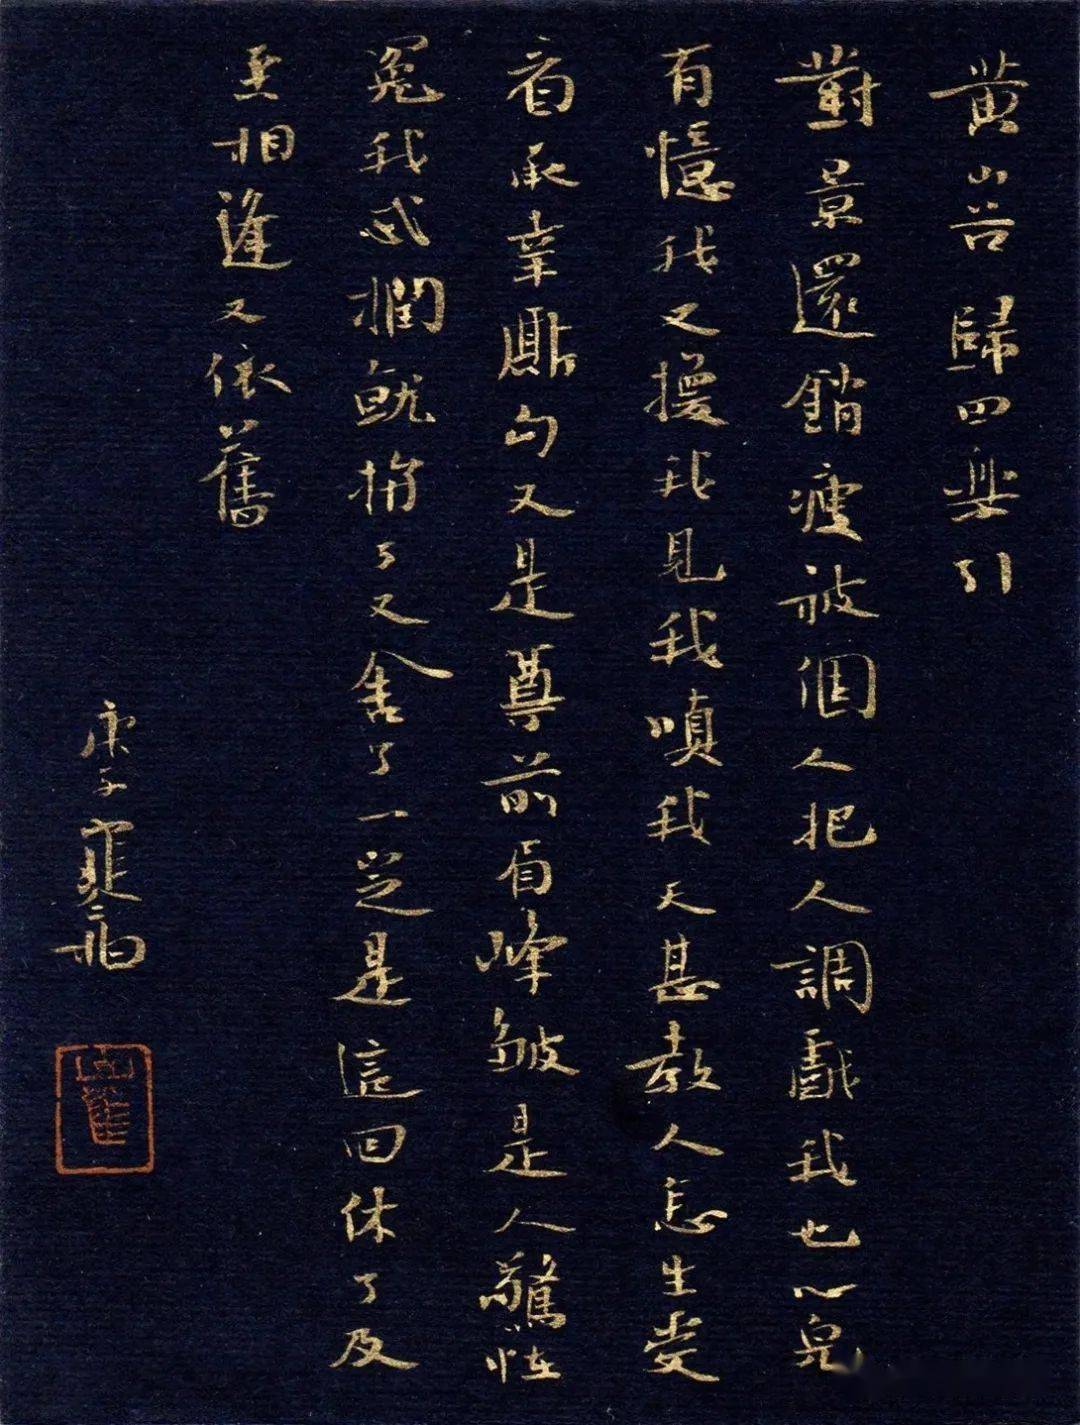 黄山谷歸田樂引
對景還銷瘦被個人把人調戲我也心兒
有憶我又我見我嗔我天甚教人怎生受
看承幸廝勾又是尊前眉峰皺是人驚怪
冤我忒撋就拚了又舍了一定是這回休了及
至相逢又依舊
庚子